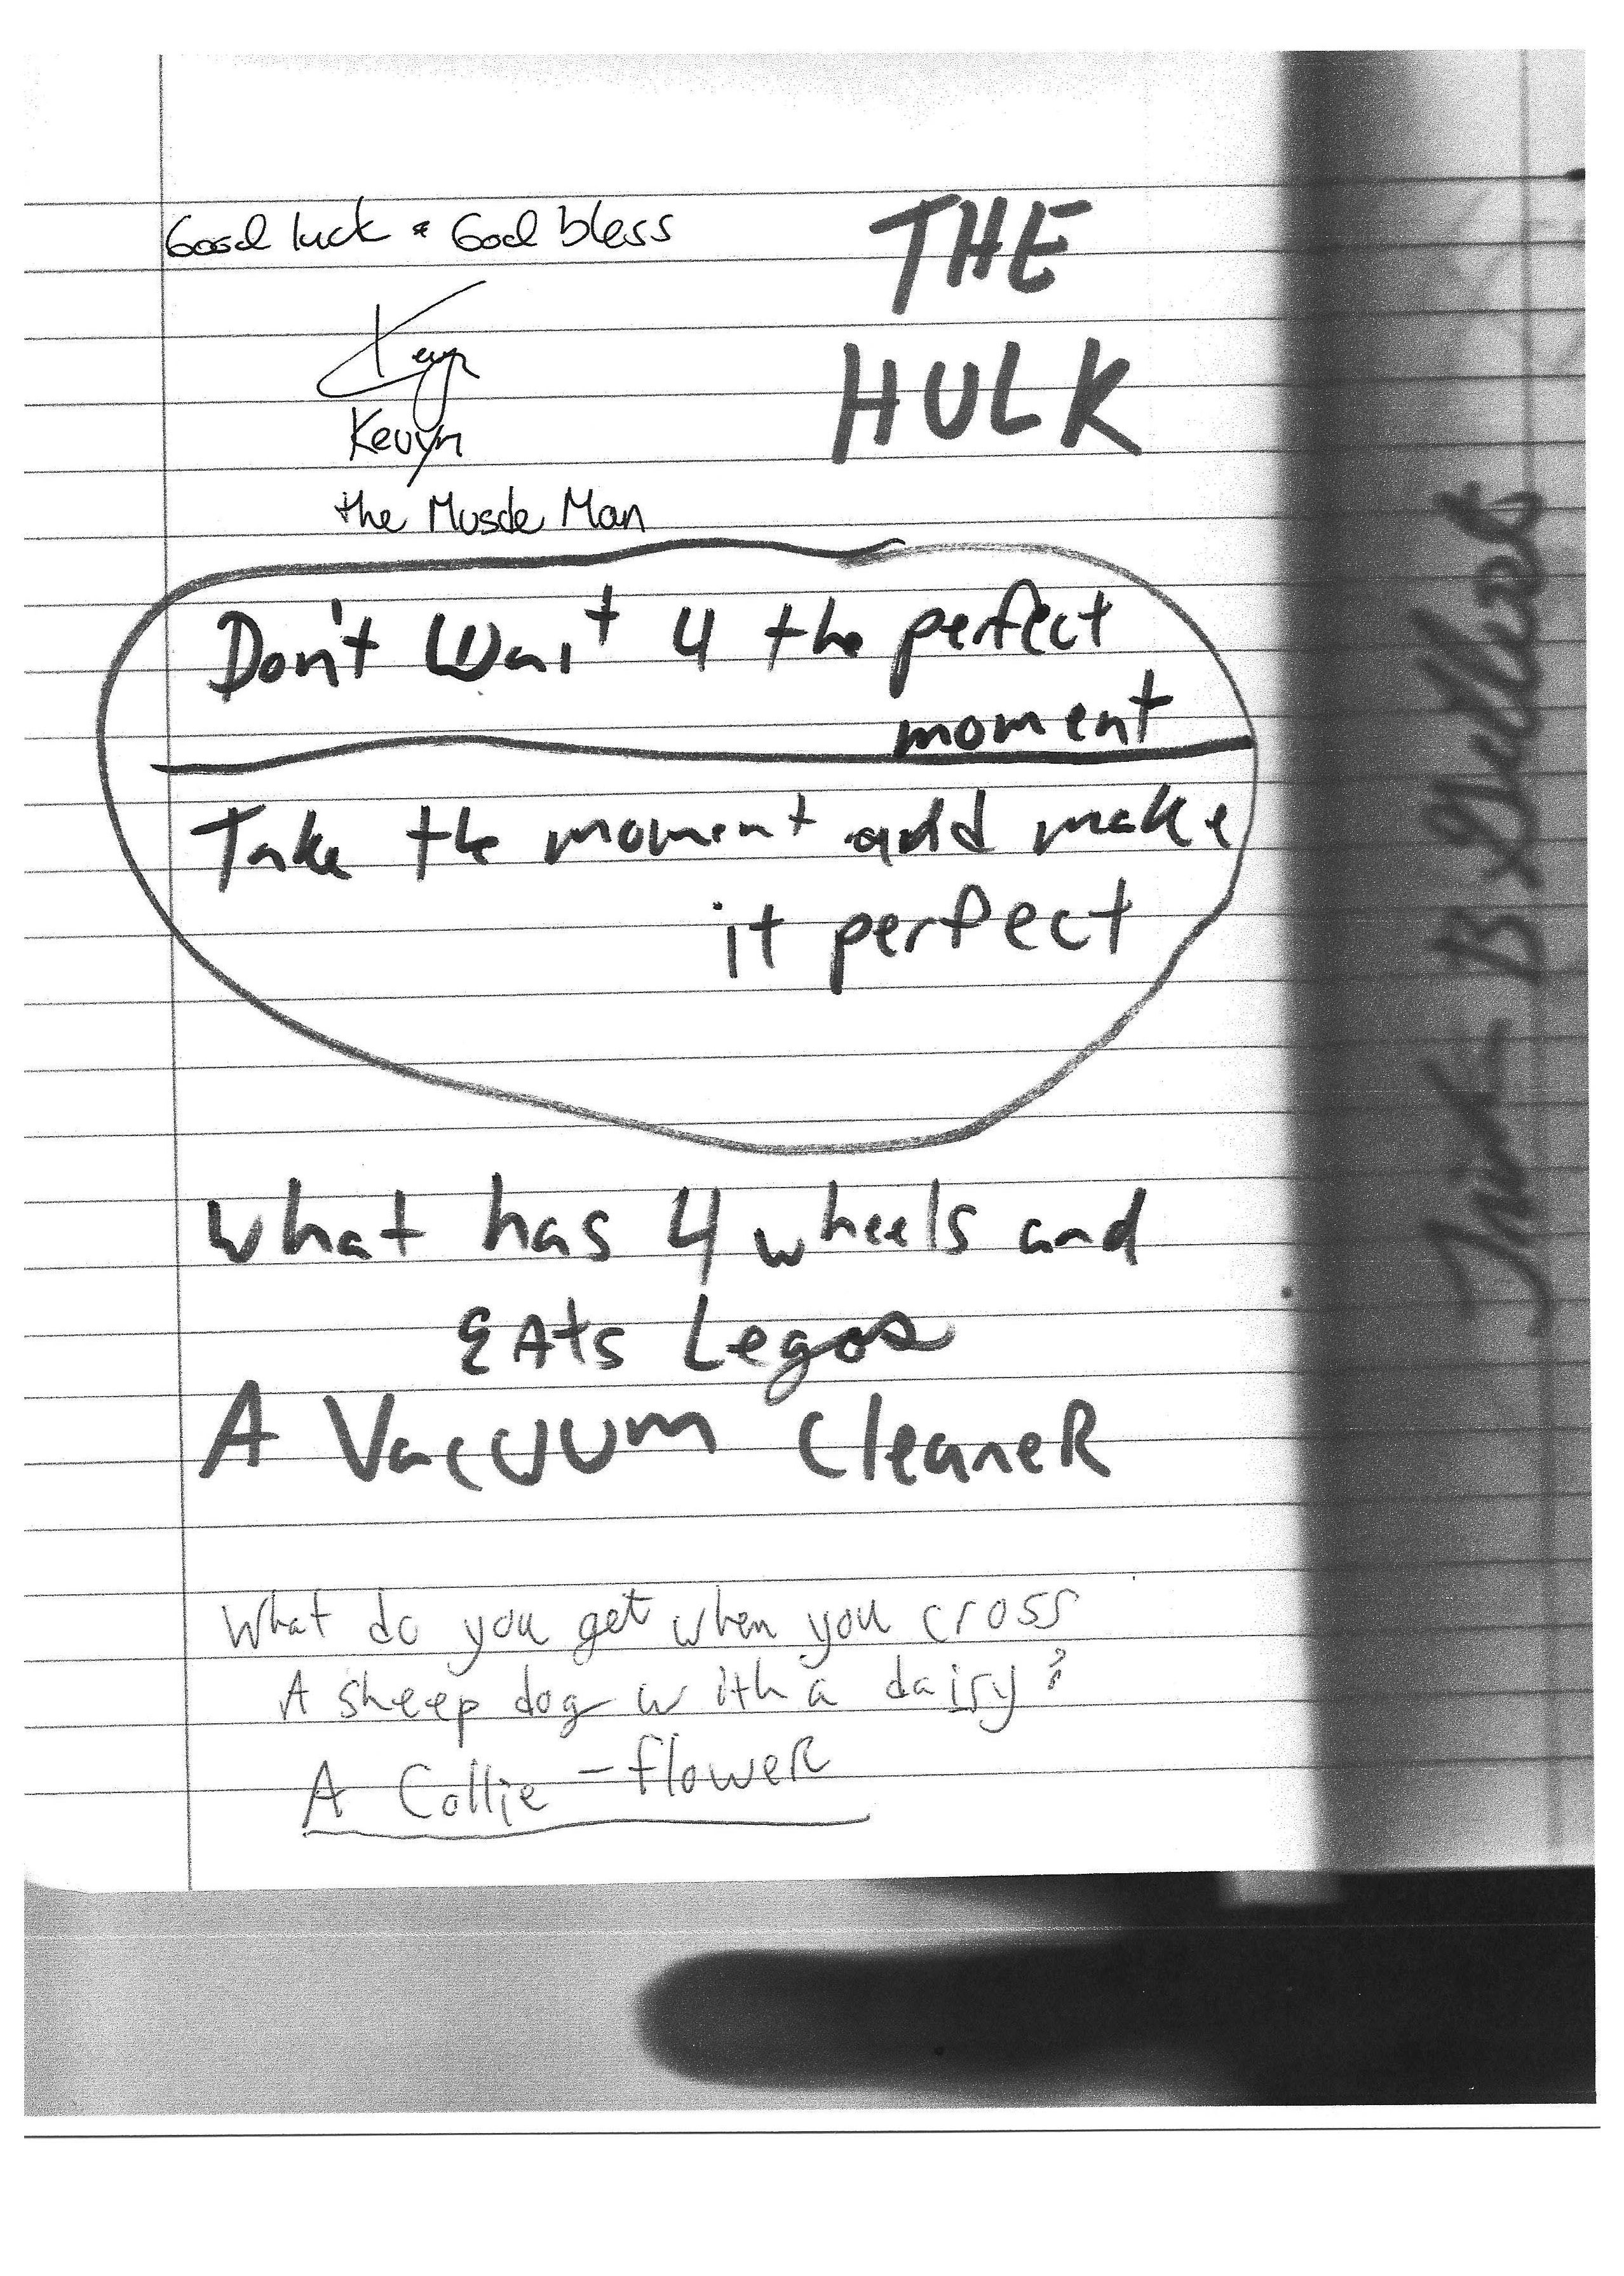 Good luck & God bless
THE
HULK
Kevyn
Kevyn
the Muscle Man
Don't Wait 4 the perfect
moment
Take the moment and make
it perfect
What has 4 wheels and
EAts Legos
A Vacuum CleaneR
What do you get when you cross
A sheep dog with a daisy?
A Collie - floweR
B